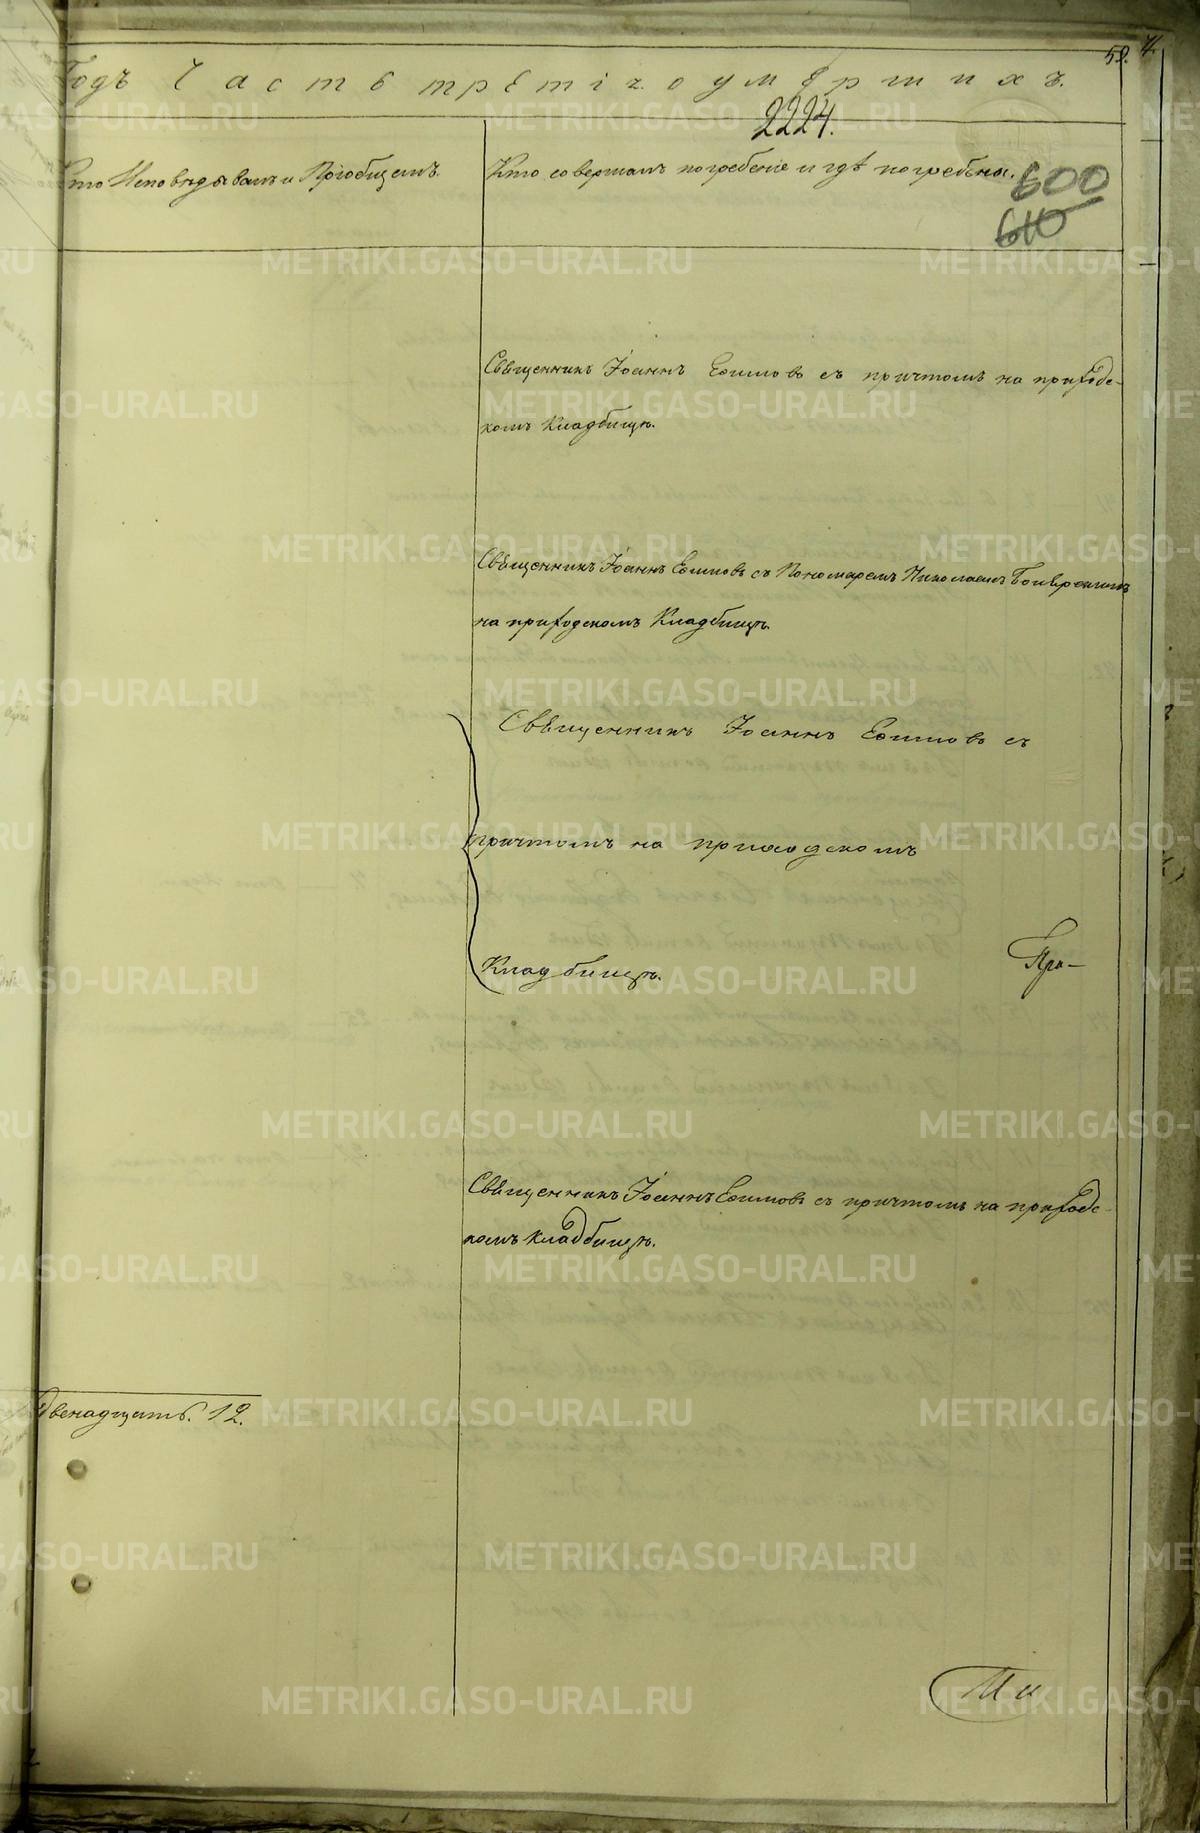 59.
Годъ Часть третія о умершихъ.
2224.
Кто Исповѣдывалъ и Пріобщалъ.
Кто совершалъ погребеніе и гдѣ погребены.
600
610
Священникъ Іоаннъ Ефимовъ съ причтомъ на приходс-
комъ Кладбищѣ.
Священникъ Іоаннъ Ефимовъ съ Пономаремъ Николаемъ
на приходскомъ Кладбищѣ.
Священникъ Іоаннъ Ефимовъ съ
причтомъ на приходскомъ
Кладбищѣ.
Пра-
Священникъ Іоаннъ Ефимовъ съ причтомъ на приходс-
комъ кладбищѣ.
Двенадцать. 12.
METRIKI.GASO-URAL.RU